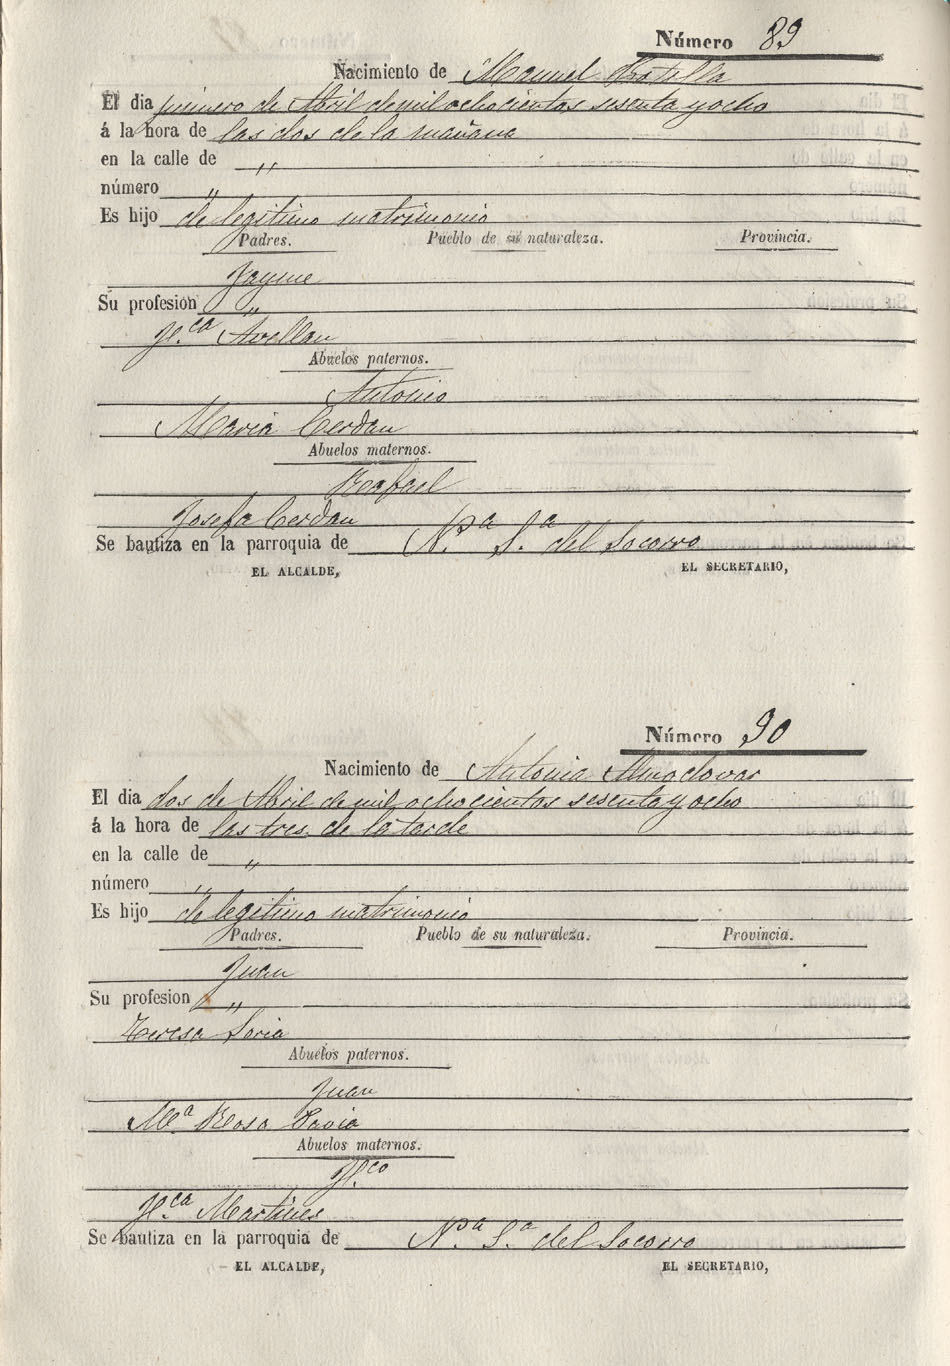 Número 89
Nacimiento de Manuel Botella
El dia primero de Abril de mil ochocientos sesenta y ocho
á la hora de las dos de la mañana
en la calle de "
número "
Es hijo de legitimo matrimonio
Padres. Pueblo de su naturaleza. Provincia.
Jayme
Su profesión "
Fr.ca Avellan
Abuelos paternos.
Antonio
Maria Cerdan
Abuelos maternos.
Rafael
Josefa Cerdan
Se bautiza en la parroquia de N.a S.a del Socorro
EL ALCALDE, EL SECRETARIO,
Número 90
Nacimiento de Antonia Almodovar
El dia dos de Abril de mil ochocientos sesenta y ocho
á la hora de las tres de la tarde
en la calle de "
número "
Es hijo de legitimo matrimonio
Padres. Pueblo de su naturaleza. Provincia.
Juan
Su profesion "
Teresa Soria
Abuelos paternos.
Juan
M.a Rosa Pavia
Abuelos maternos.
Fr.co
Fr.ca Martines
Se bautiza en la parroquia de N.a S.a del Socorro
EL ALCALDE, EL SECRETARIO,